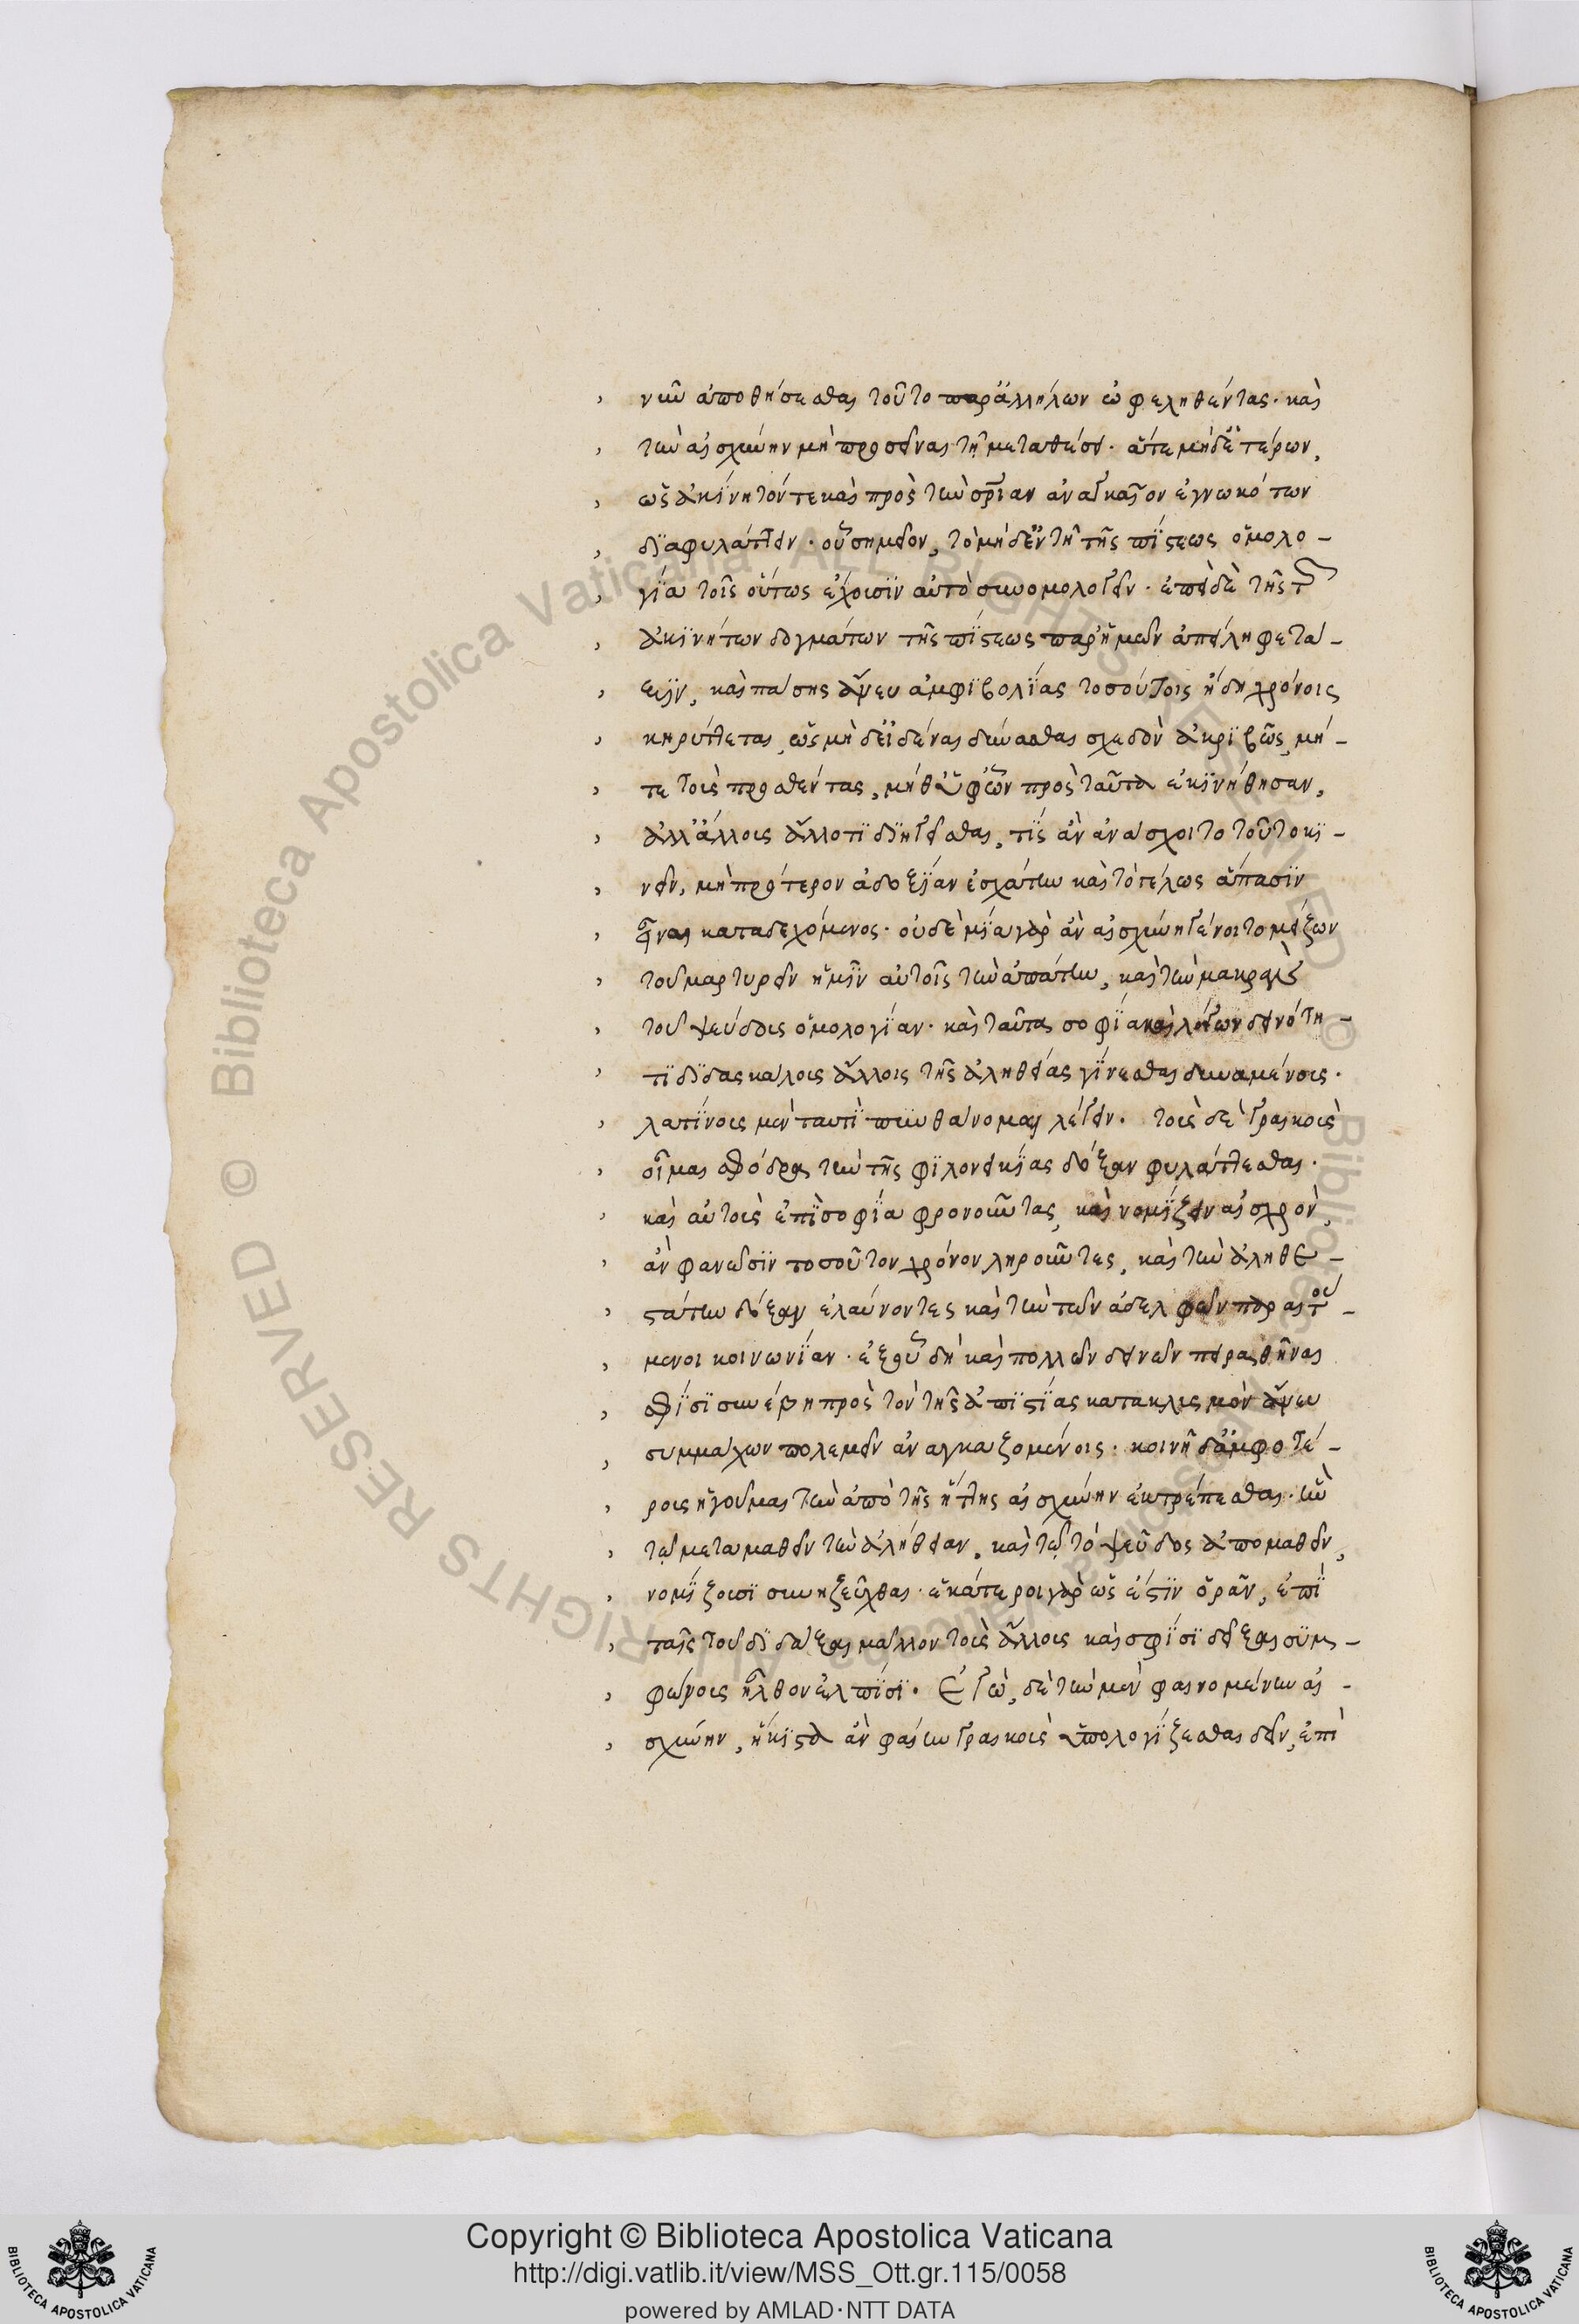 νῦν ἀποθήσεσθαι τοῦτο παρἀλλήλων ὠφεληθέντας· καὶ
τὴν αἰσχύνην μὴ προσεῖναι τῇ μεταθέσει· ἅτε μηδετέρων,
ὡς ἀκίνητόν τε καὶ πρὸς τὴν σρίαν ἀναγκαῖον ἐγνωκότων
διαφυλάττειν· οὗ σημεῖον, τὸ μηδὲν τῇ τῆς πίστεως ὁμολο-
γίᾳ τοῖς οὕτως ἔχουσιν αὐτὸ συνομολογεῖν· ἐπεὶ δὲ τῆς τῶν
ἀκινήτων δογμάτων τῆς πίστεως παρ' ἡμῶν ἀπείληφε τά-
ξιν, καὶ πάσης ἄνευ ἀμφιβολίας τοσούτοις ἤδη χρόνοις
κηρύττεται, ὡς μηδ' εἰδέναι δύνασθαι σχεδὸν ἀκριβῶς, μή-
τε τοὺς προσθέντας, μήθ' ὑφ' ὧν πρὸς ταῦτα ἐκινήθησαν,
ἀλλ' ἄλλοις ἄλλο τι διηγεῖσθαι, τίς ἂν ἀνάσχοιτο τοῦτο κι-
νεῖν, μὴ πρότερον ἀδοξίαν ἐσχάτην καὶ τὸ γέλως ἅπασιν
εἶναι καταδεχόμενος· οὐδεμία γὰρ ἂν αἰσχύνη γένοιτο μείζων
τοῦ μαρτυρεῖν ἡμῖν αὐτοῖς τὴν ἀπάτην, καὶ τὴν μακρὰν
τοῦ ψεύδους ὁμολογίαν· καὶ ταῦτα σοφίᾳ καὶ λόγων δεινότη-
τι διδασκάλοις ἄλλοις τῆς ἀληθείας γίνεσθαι δυναμένοις·
λατίνοις μὲν ταυτὶ πυνθάνομαι λέγειν· τοὺς δὲ γραικοὺς
οἶμαι σφόδρα τὴν τῆς φιλονεικίας δόξαν φυλάττεσθαι·
καὶ αὐτοὺς ἐπὶ σοφίᾳ φρονοῦντας, καὶ νομίζειν αἰσχρὸν,
ἂν φανῶσιν τοσοῦτον χρόνον ληροῦντες, καὶ τὴν ἀληθε-
στάτην δόξαν ἐλαύνοντες καὶ τὴν τῶν ἀδελφῶν παραιτού-
μενοι κοινωνίαν· ἐξ οὗ δὴ καὶ πολλῶν δεινῶν πειραθῆναι
σφίσι συνέβη πρὸς τὸν τῆς ἀπιστίας κατακλυσμὸν ἄνευ
συμμάχων πολεμεῖν ἀναγκαζομένοις· κοινῇ δ' ἀμφοτέ-
ροις ἡγοῦμαι τὴν ἀπὸ τῆς ἥττης αἰσχύνην ἐκτρέπεσθαι· ἣν
τῷ μεταμαθεῖν τὴν ἀλήθειαν, καὶ τῷ τὸ ψεῦδος ἀπομαθεῖν,
νομίζουσι συνηζεῦχθαι· ἑκάτεροι γὰρ ὡς ἔστιν ὁρᾶν, ἐπὶ
ταῖς τοῦ διδάξαι μᾶλλον τοὺς ἄλλους καὶ σφίσι δεῖξαι συμ-
φώνους ἦλθον ἐλπίσι· Ἐγὼ, δὲ τὴν μὲν φαινομένην αἰ-
σχύνην, ἥκιστα ἂν φαίην γραικοὺς ὑπολογίζεσθαι δεῖν, ἐπὶ
Copyright © Biblioteca Apostolica Vaticana
http://digi.vatlib.it/view/MSS_Ott.gr.115/0058
powered by AMLAD·NTT DATA